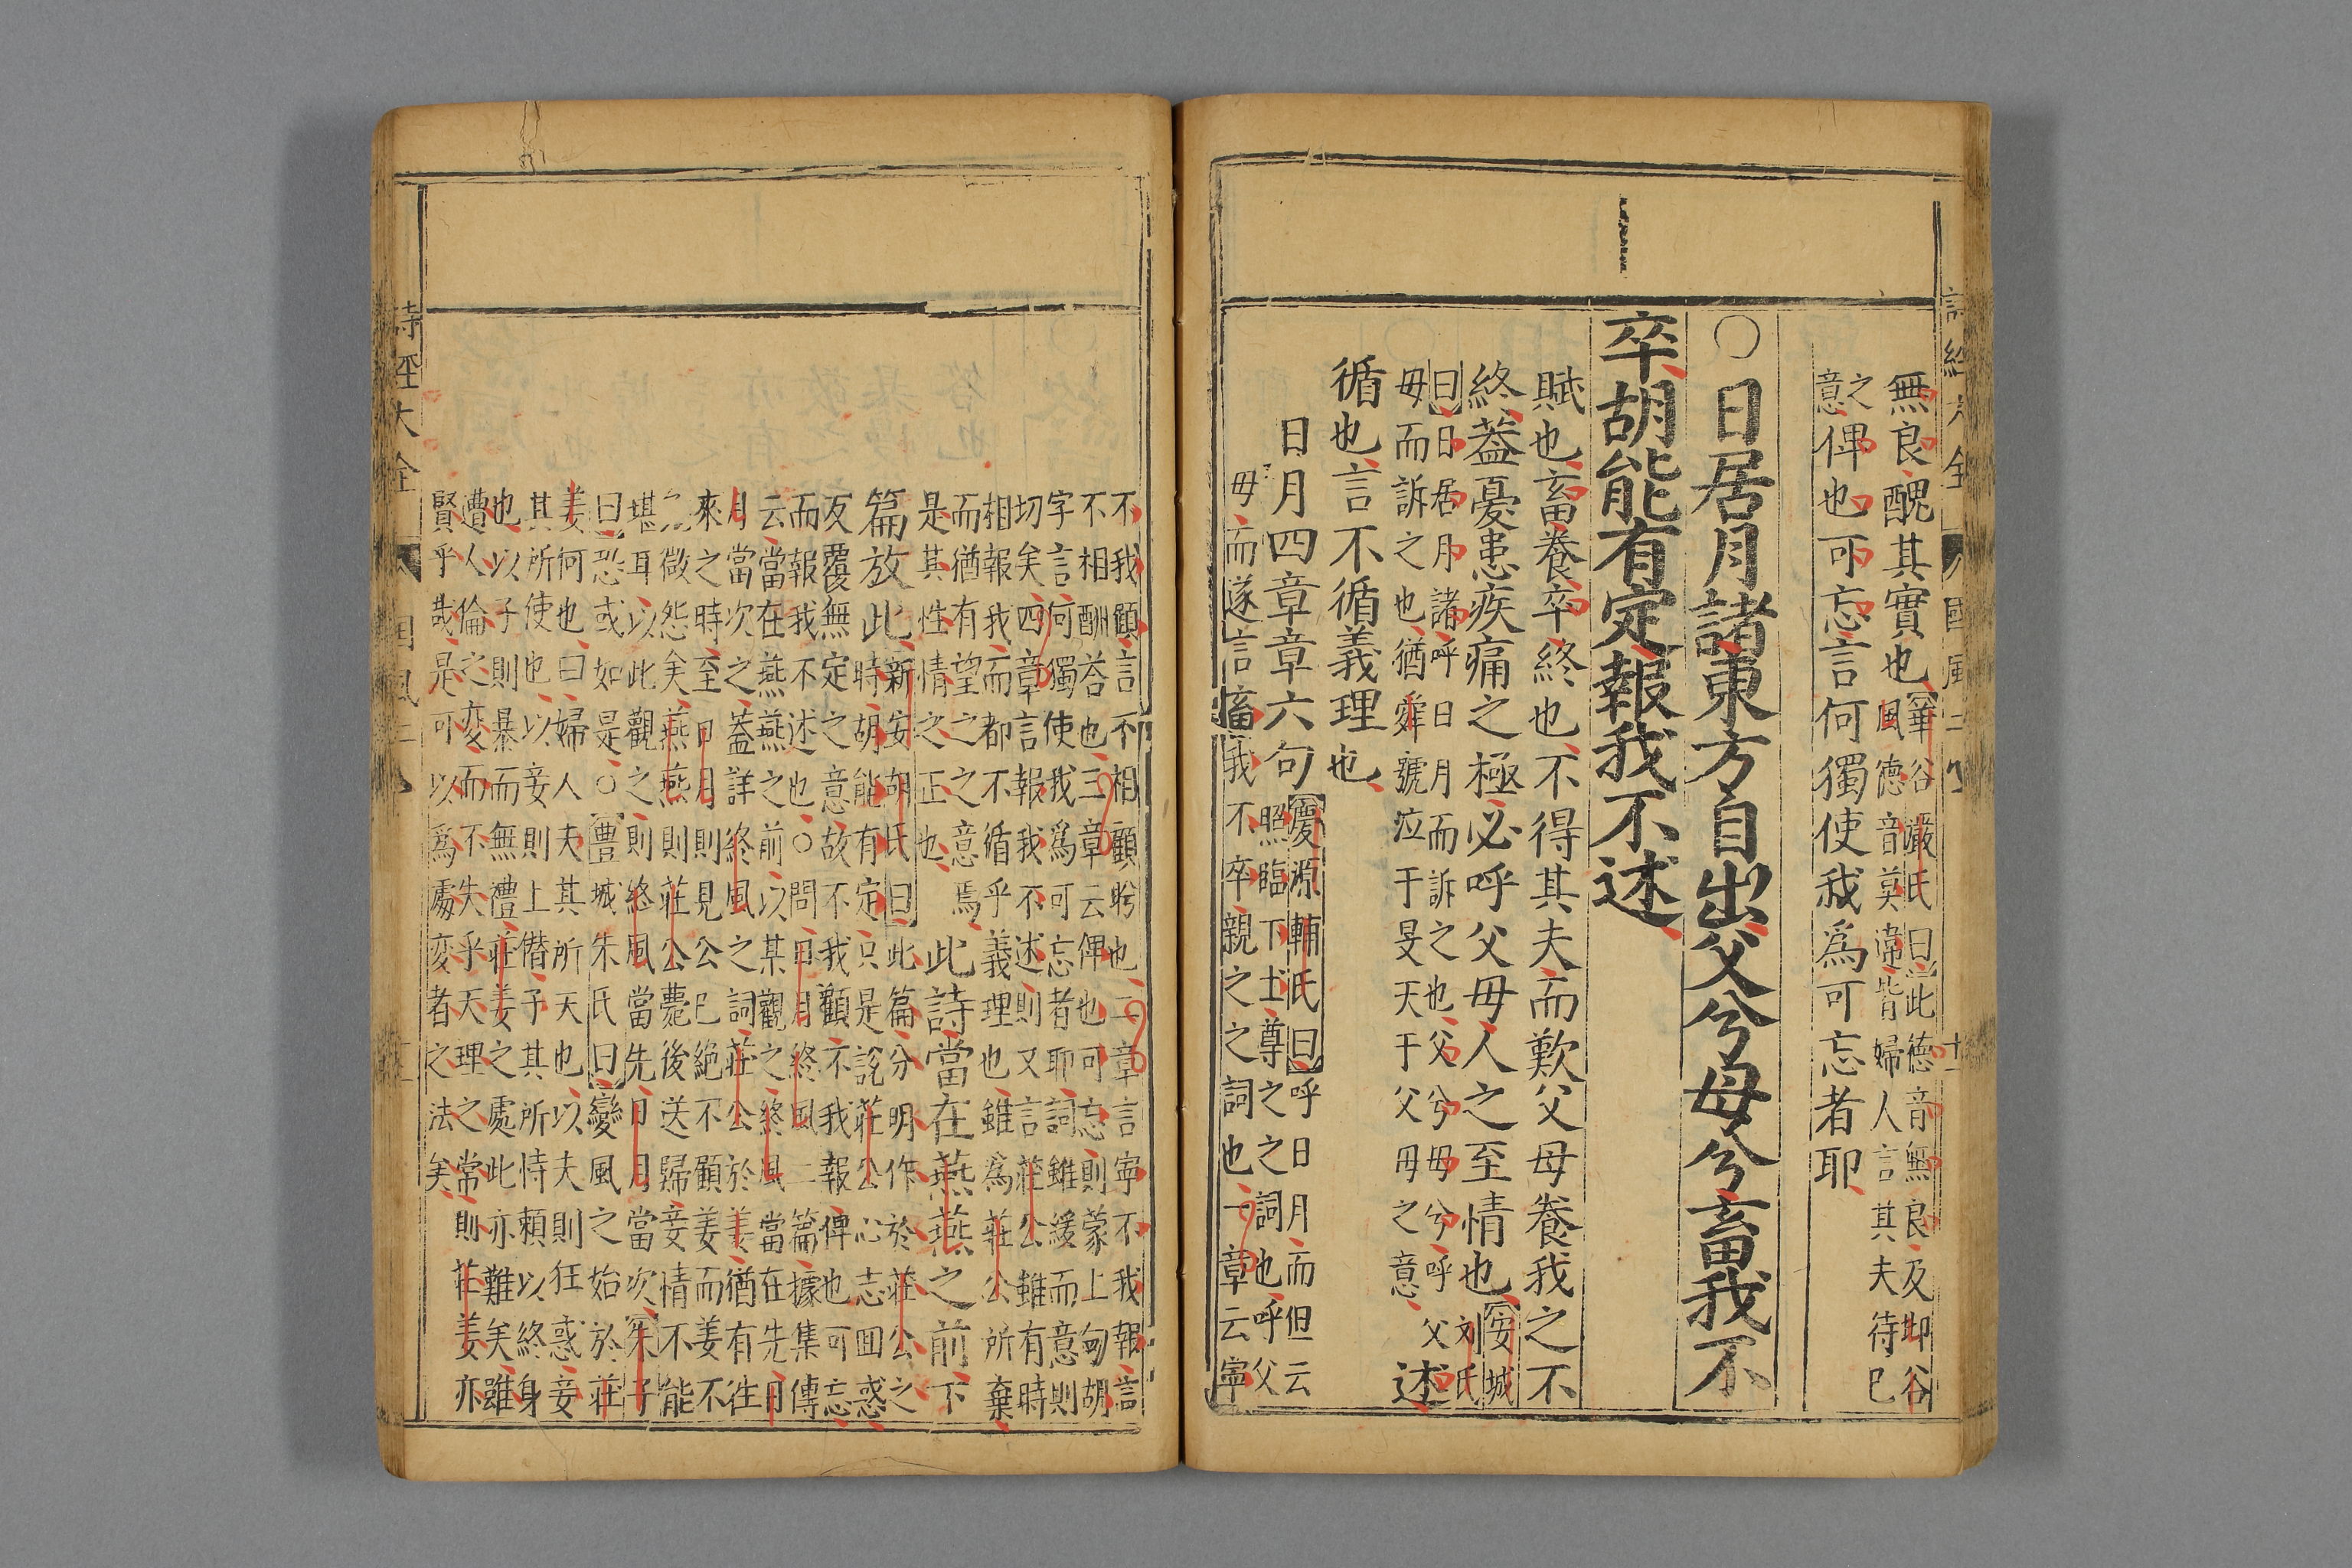 詩經大全　國風二
無良醜其實也華谷嚴氏曰此德音無良及邶谷
風德音莫違皆婦人言其夫待己
之意俾也可忘言何獨使我爲可忘者耶
○日居月諸東方自出父兮母兮畜我不
卒胡能有定報我不述
賦也畜養卒終也不得其夫而歎父母養我之不
終蓋憂患疾痛之極必呼父母人之至情也安城
劉氏
曰日居月諸呼日月而訴之也父兮母兮呼父
母而訴之也猶舜號泣于旻天于父母之意述
循也言不循義理也
日月四章章六句慶源輔氏曰呼日月而但云
照臨下土尊之之詞也呼父
母而遂言畜我不卒親之之詞也一章云寧
不我顧言不相顧盻也二章言寧不我報言
不相酬荅也三章云俾也可忘則蒙上句胡
字言何獨使我爲可忘者耶詞雖緩而意則
切矣四章言報我不述則又言莊公雖有時
相報我而都不循乎義理也雖爲莊公所棄
而猶有望之之意焉
是其性情之正也
此詩當在燕燕之前下
篇放此新安胡氏曰此篇分明作於莊公之
時胡能有定只是說莊公心志回惑
反覆無定之意故不我顧不我報俾也可忘
而報我不述也○問日月終風二篇據集傳
云當在燕燕之前以某觀之終風當在先日
月當次之蓋詳終風之詞莊公於姜猶有往
來之時至日月則見公已絕不顧姜而姜不
免微怨矣燕燕則莊公薨後送歸妾情不能
堪耳以此觀之則終風當先日月當次朱子
曰恐或如是○豐城朱氏曰變風之始於莊
姜何也曰婦人夫其所天也以夫則狂惑妾
其所使也以妾則上僭子其所恃賴以終身
也以子則暴而無禮莊姜之處此亦難矣雖
遭人倫之变而不失乎天理之常則莊姜亦
賢乎哉是可以爲處变者之法矣
詩經大全　國風二